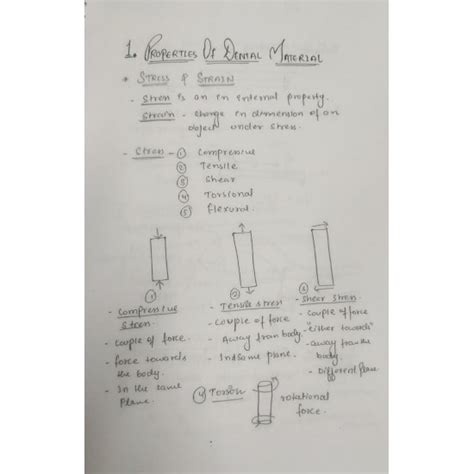 1. PROPERTIES OF DENTAL MATERIAL
* STRESS & STRAIN
- Stress is an in internal property.
Strain - change in dimension of an
object under stress.
- Stress - ① Compressive
② Tensile
③ Shear
④ Torsional
⑤ flexural.
①
- Compressive
stress.
- Couple of force.
- force towards
the body.
- In the same
plane.
②
- Tensile stress
- Couple of force
- Away from body.
- In same plane.
③
- Shear stress.
- Couple of force
- "either towards"
- away from the
body.
- Different plane
④ Torsion
rotational
force.